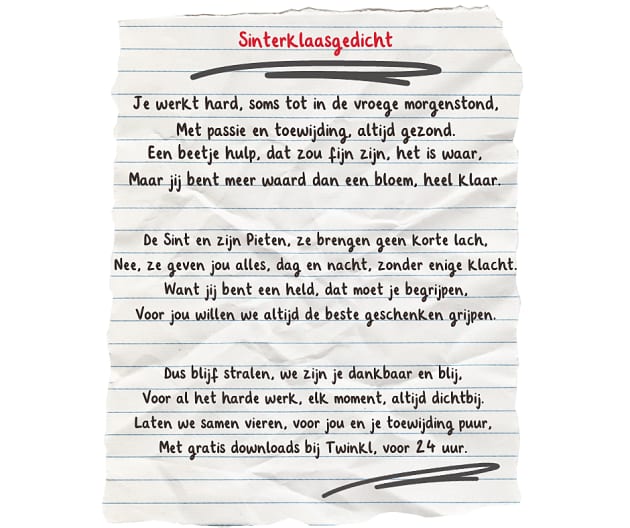 Sinterklaasgedicht
Je werkt hard, soms tot in de vroege morgenstond,
Met passie en toewijding, altijd gezond.
Een beetje hulp, dat zou fijn zijn, het is waar,
Maar jij bent meer waard dan een bloem, heel klaar.
De Sint en zijn Pieten, ze brengen geen korte lach,
Nee, ze geven jou alles, dag en nacht, zonder enige klacht.
Want jij bent een held, dat moet je begrijpen,
Voor jou willen we altijd de beste geschenken grijpen.
Dus blijf stralen, we zijn je dankbaar en blij,
Voor al het harde werk, elk moment, altijd dichtbij.
Laten we samen vieren, voor jou en je toewijding puur,
Met gratis downloads bij Twinkl, voor 24 uur.